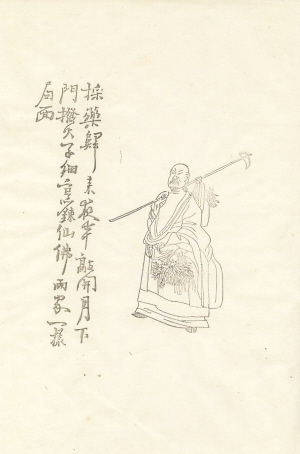 採藥歸來夜半敲開月下
門撥火子細烹鍊仙佛兩家一樣
局面